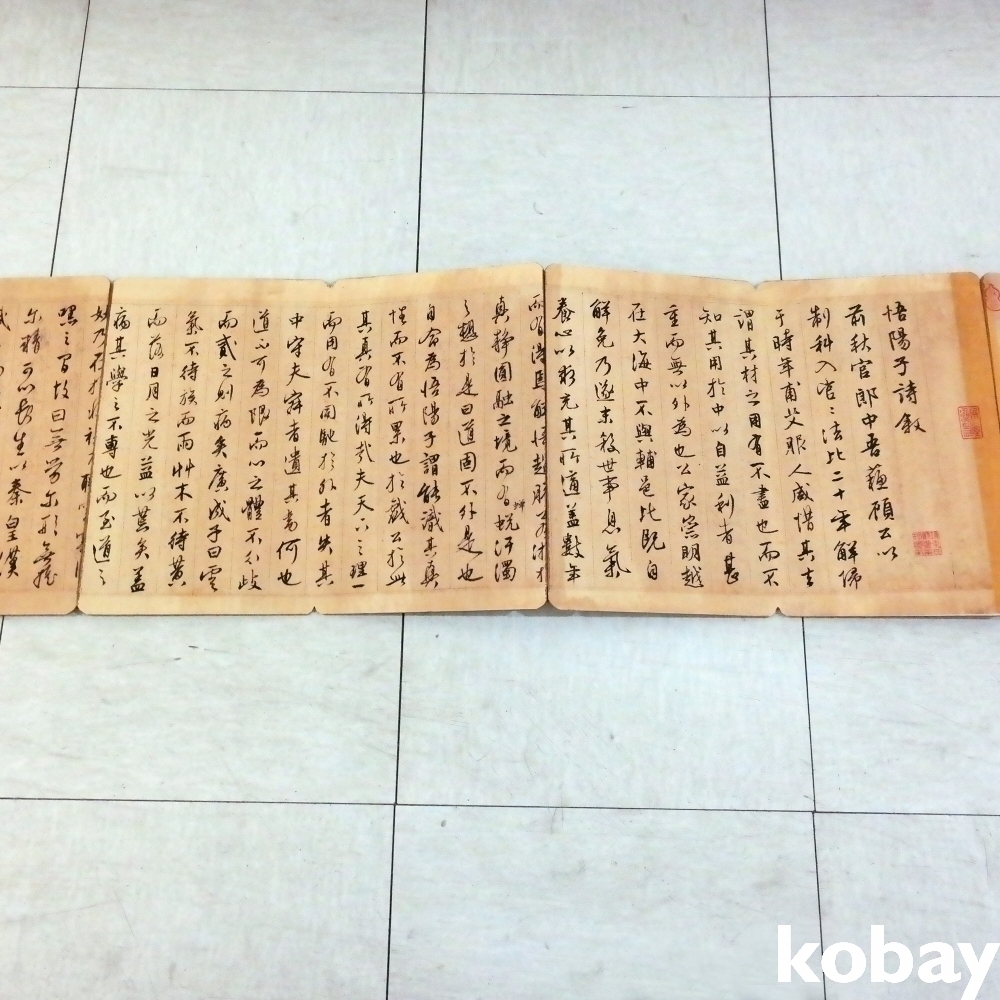 悟陽子詩敘
前秋官郎中吾蘓頋公以
制科入官〻法比二十年解帰
于時年甫艾服人咸惜其去
謂其材之用有不盡也而不
知其用於中以自益利者甚
重而無以外為也公家崇明越
在大海中不與輔邑比既自
解免乃遂末殺世事息氣
養心以務充其所道蓋數年
而有得焉觧悟超脫
真静圓融之境而有蛻汙濁
之趣於是曰道固不外是也
自命為悟陽子謂能識其真
性而不有所累也於戲公於此
其真有所淂哉夫天下之理一
而用有不同馳於外者失其
中守夫寂者遺其為何也
道之可為限而心之體不分歧
而貳之則病矣廣成子曰雲
氣不待族而雨艸木不待黄
而落日月之光益以荒矣蓋
病其學之不專也而至道之
嘿之間故曰無勞尒形無揺
尒精可以長生以秦皇漢
kobay